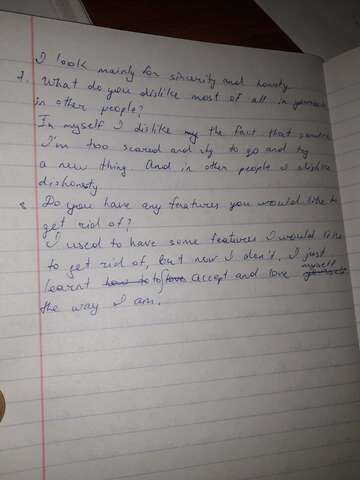 I look mainly for sincerity and honesty
7. What do you dislike most of all in yourself
in other people?
In myself I dislike my the fact that
I'm too scared and shy to go and try
a new thing And in other people I dislike
dishonesty
8. Do you have any features you would like to
get rid of?
I used to have some features I would like
to get rid of, but now I don't, I just
learnt how to to love accept and love yourself myself
the way I am.